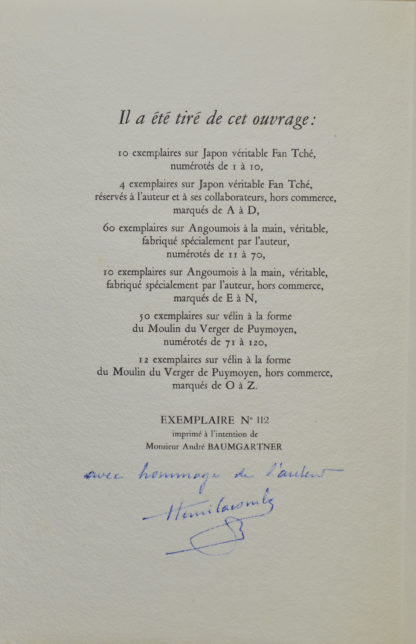 Il a été tiré de cet ouvrage :
10 exemplaires sur Japon véritable Fan Tché,
numérotés de 1 à 10,
4 exemplaires sur Japon véritable Fan Tché,
réservés à l'auteur et à ses collaborateurs, hors commerce,
marqués de A à D,
60 exemplaires sur Angoumois à la main, véritable,
fabriqué spécialement par l'auteur,
numérotés de 11 à 70,
10 exemplaires sur Angoumois à la main, véritable,
fabriqué spécialement par l'auteur, hors commerce,
marqués de E à N,
50 exemplaires sur vélin à la forme
du Moulin du Verger de Puymoyen,
numérotés de 71 à 120,
12 exemplaires sur vélin à la forme
du Moulin du Verger de Puymoyen, hors commerce,
marqués de O à Z.
EXEMPLAIRE N° 112
imprimé à l'intention de
Monsieur André BAUMGARTNER
avec hommage de l'auteur